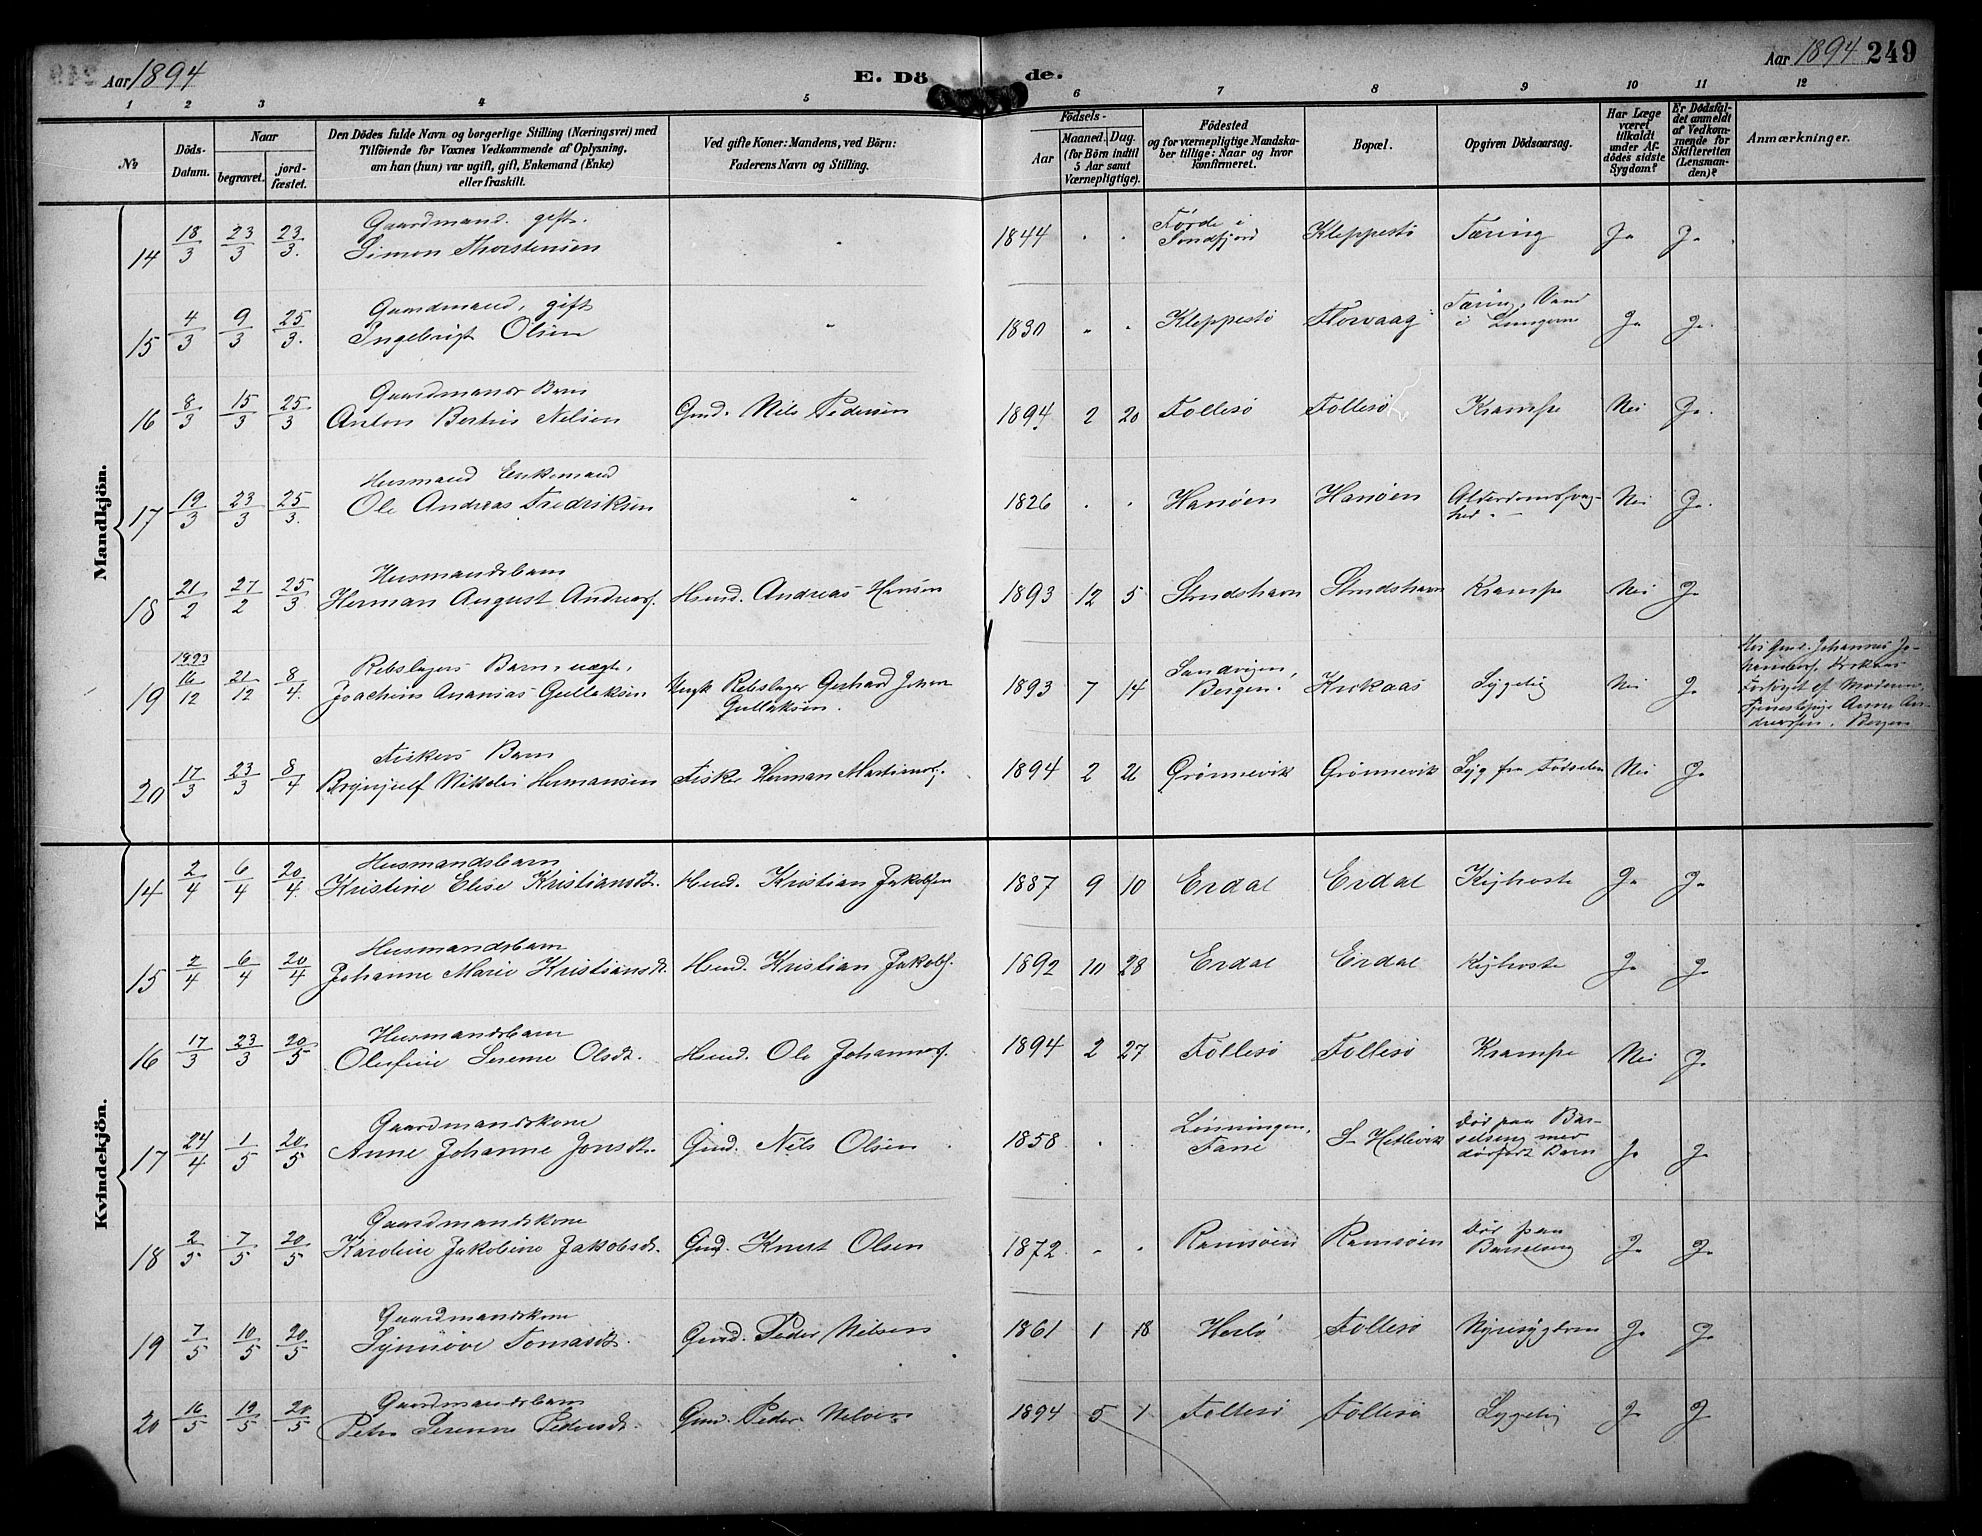 Aar 1894
E. Döde.
Aar 1894 249
1 2 3 4 5 6 7 8 9 10 11 12
№
Döds-Datum.
Naar
begravet.
jordfæstet.
Den Dödes fulde Navn og borgerlige Stilling (Næringsvei) med
Tilföiende for Voxnes Vedkommende af Oplysning,
om han (hun) var ugift, gift, Enkemand (Enke)
eller fraskilt.
Ved gifte Koner: Mandens, ved Börn:
Faderens Navn og Stilling.
Födsels-
Aar
Maaned. Dag.
(for Börn indtil
5 Aar samt
Værnepligtige).
Födested
og for værnepligtige Mandskaber tillige: Naar og hvor
konfirmeret.
Bopæl.
Opgiven Dödsaarsag.
Har Læge
været
tilkaldt
under Afdödes sidste
Sygdom?
Er Dödsfaldet anmeldt
af Vedkommende for
Skifteretten
(Lensmanden)?
Anmærkninger.
Mandkjön.
14 18/3 23/3 23/3. Gaardmand. gift.
Simon Thorstensen " 1844 " " Førde i
Søndfjord Kleppestø Tæring Ja Ja
15 4/3 9/3 25/3. Gaardmand, gift
Ingebrigt Olsen " 1830 " " Kleppestø Florvaag Tæring, Vand
i Lungerne Ja Ja.
16 8/3 15/3 25/3 Gaardmands Barn
Anton Bertin Nilsen Gmd. Nils Pedersen 1894 2 20 Follesø Follesø Krampe Nei Ja.
17 19/3 23/3 25/3. Husmand Enkemand
Ole Andreas Fredriksen " 1826 " " Hanøen Hanøen Alderdomssvaghed Nei Ja.
18 21/2 27/2 25/3 Husmandsbarn
Herman August Andreas. Hmd. Andreas Hansen 1893 12 5 Strudshavn Strudshavn Krampe Nei Ja
19 1893 16/12 21/12 8/4. Rebslagers Barn, uægt.
Joachim Ananias Gullaksen Ungk Rebslager Gerhard Johan
Gullaksen. 1893 7 14 Sandvigen,
Bergen. Krokaas Sygelig Nei Ja
Hos Gmd. Johannes Johannes. Krokaas
Forsørget af Moderen,
Tjenestepige Anna Andreassen, Bergen
20 17/3 23/3 8/4 Fiskers Barn
Brynjulf Nikolai Hermansen Fisker Herman Martinus. 1894 2 26 Grønnevik Grønnevik Syg fra Fødselen Nei Ja
Kvindekjön.
14 2/4 6/4 20/4. Husmandsbarn
Kristine Elise Kristiansdt. Hmd. Kristian Jakobsen 1887 9 10 Erdal Erdal Kighoste Ja Ja
15 2/4 6/4 20/4 Husmandsbarn
Johanne Marie Kristiansdt. Hmd. Kristian Jakobs. 1892 10 28 Erdal Erdal Kighoste Ja Ja
16 17/3 23/3 20/5 Husmandsbarn
Olufine Serene Olsdt. Hmd. Ole Johannes. 1894 2 27 Follesø Follesø Krampe Nei Ja
17 24/4 1/5 20/5 Gaardmandskone
Anne Johanne Jonsdt. Gmd. Nils Olsen 1858 " " Lønningen,
Fane S. Hetlevik Død paa Barselseng med
dødfødt Barn Ja Ja
18 2/5 7/5 20/5 Gaardmandskone
Karoline Jakobine Jakobsdt. Gmd. Knut Olsen 1872 " " Ramsøen Ramsøen Død paa
Barselseng Ja Ja
19 7/5 10/5 20/5 Gaardmandskone
Synnøve Tomasdt. Gmd. Peder Nilsen 1861 1 18 Herlø Follesø Nyresygdom Ja Ja
20 16/5 19/5 20/5 Gaardmandsbarn
Petra Serene Pedersdt. Gmd. Peder Nilsen 1894 5 1 Follesø Follesø Sygelig Ja Ja